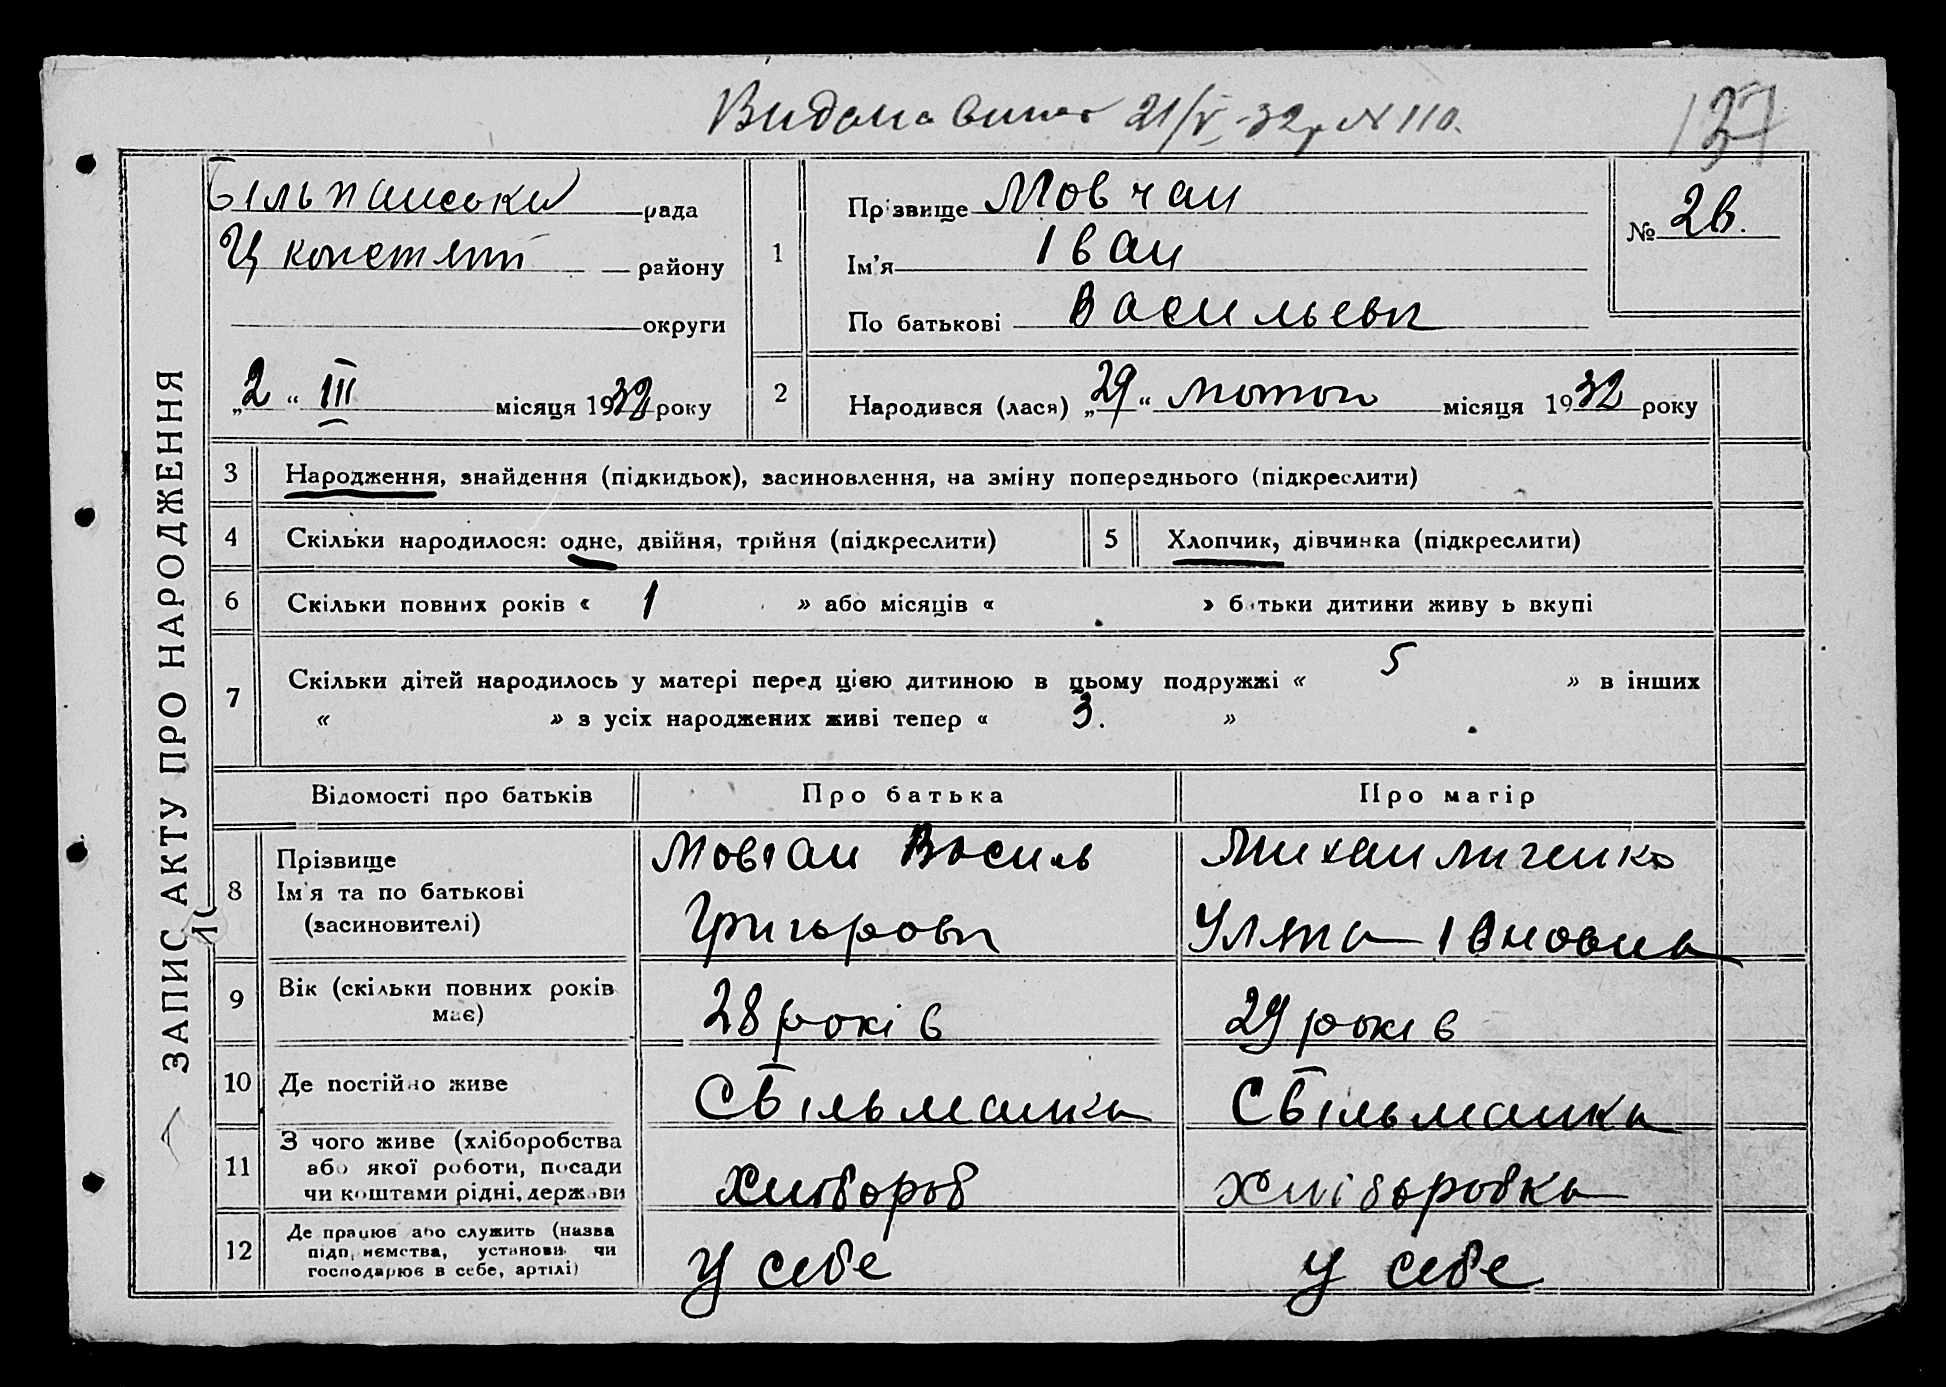 Видана випис 21/V-32р № 110.
137
ЗАПИС АКТУ ПРО НАРОДЖЕННЯ
Більманська рада
району
округи
„2“ III місяця 1932 року
1
Прізвище Мовчан
Ім'я Іван
По батькові Васильевич
№ 28.
2
Народився (лася) „29“ лютого місяця 1932 року
3 Народження, знайдення (підкидьок), засиновлення, на зміну попереднього (підкреслити)
4 Скільки народилося: одне, двійня, трійня (підкреслити)
5 Хлопчик, дівчинка (підкреслити)
6 Скільки повних років « 1 » або місяців « » батьки дитини живуть вкупі
7 Скільки дітей народилось у матері перед цією дитиною в цьому подружжі « 5 » в інших
« » з усіх народжених живі тепер « 3. »
Відомості про батьків Про батька Про матір
8 Прізвище
Ім'я та по батькові
(засиновителі)
Мовчан Василь
Григорович
Михайличенко
Уляна Івановна
9 Вік (скільки повних років
має)
28 років
29 років
10 Де постійно живе
С Більманка
С Більманка
11 З чого живе (хліборобства
або якої роботи, посади
чи коштами рідні, держави
Хлібороб
Хліборобка
12 Де працює або служить (назва
підприємства, установи чи
господарює в себе, артілі)
У себе
У себе